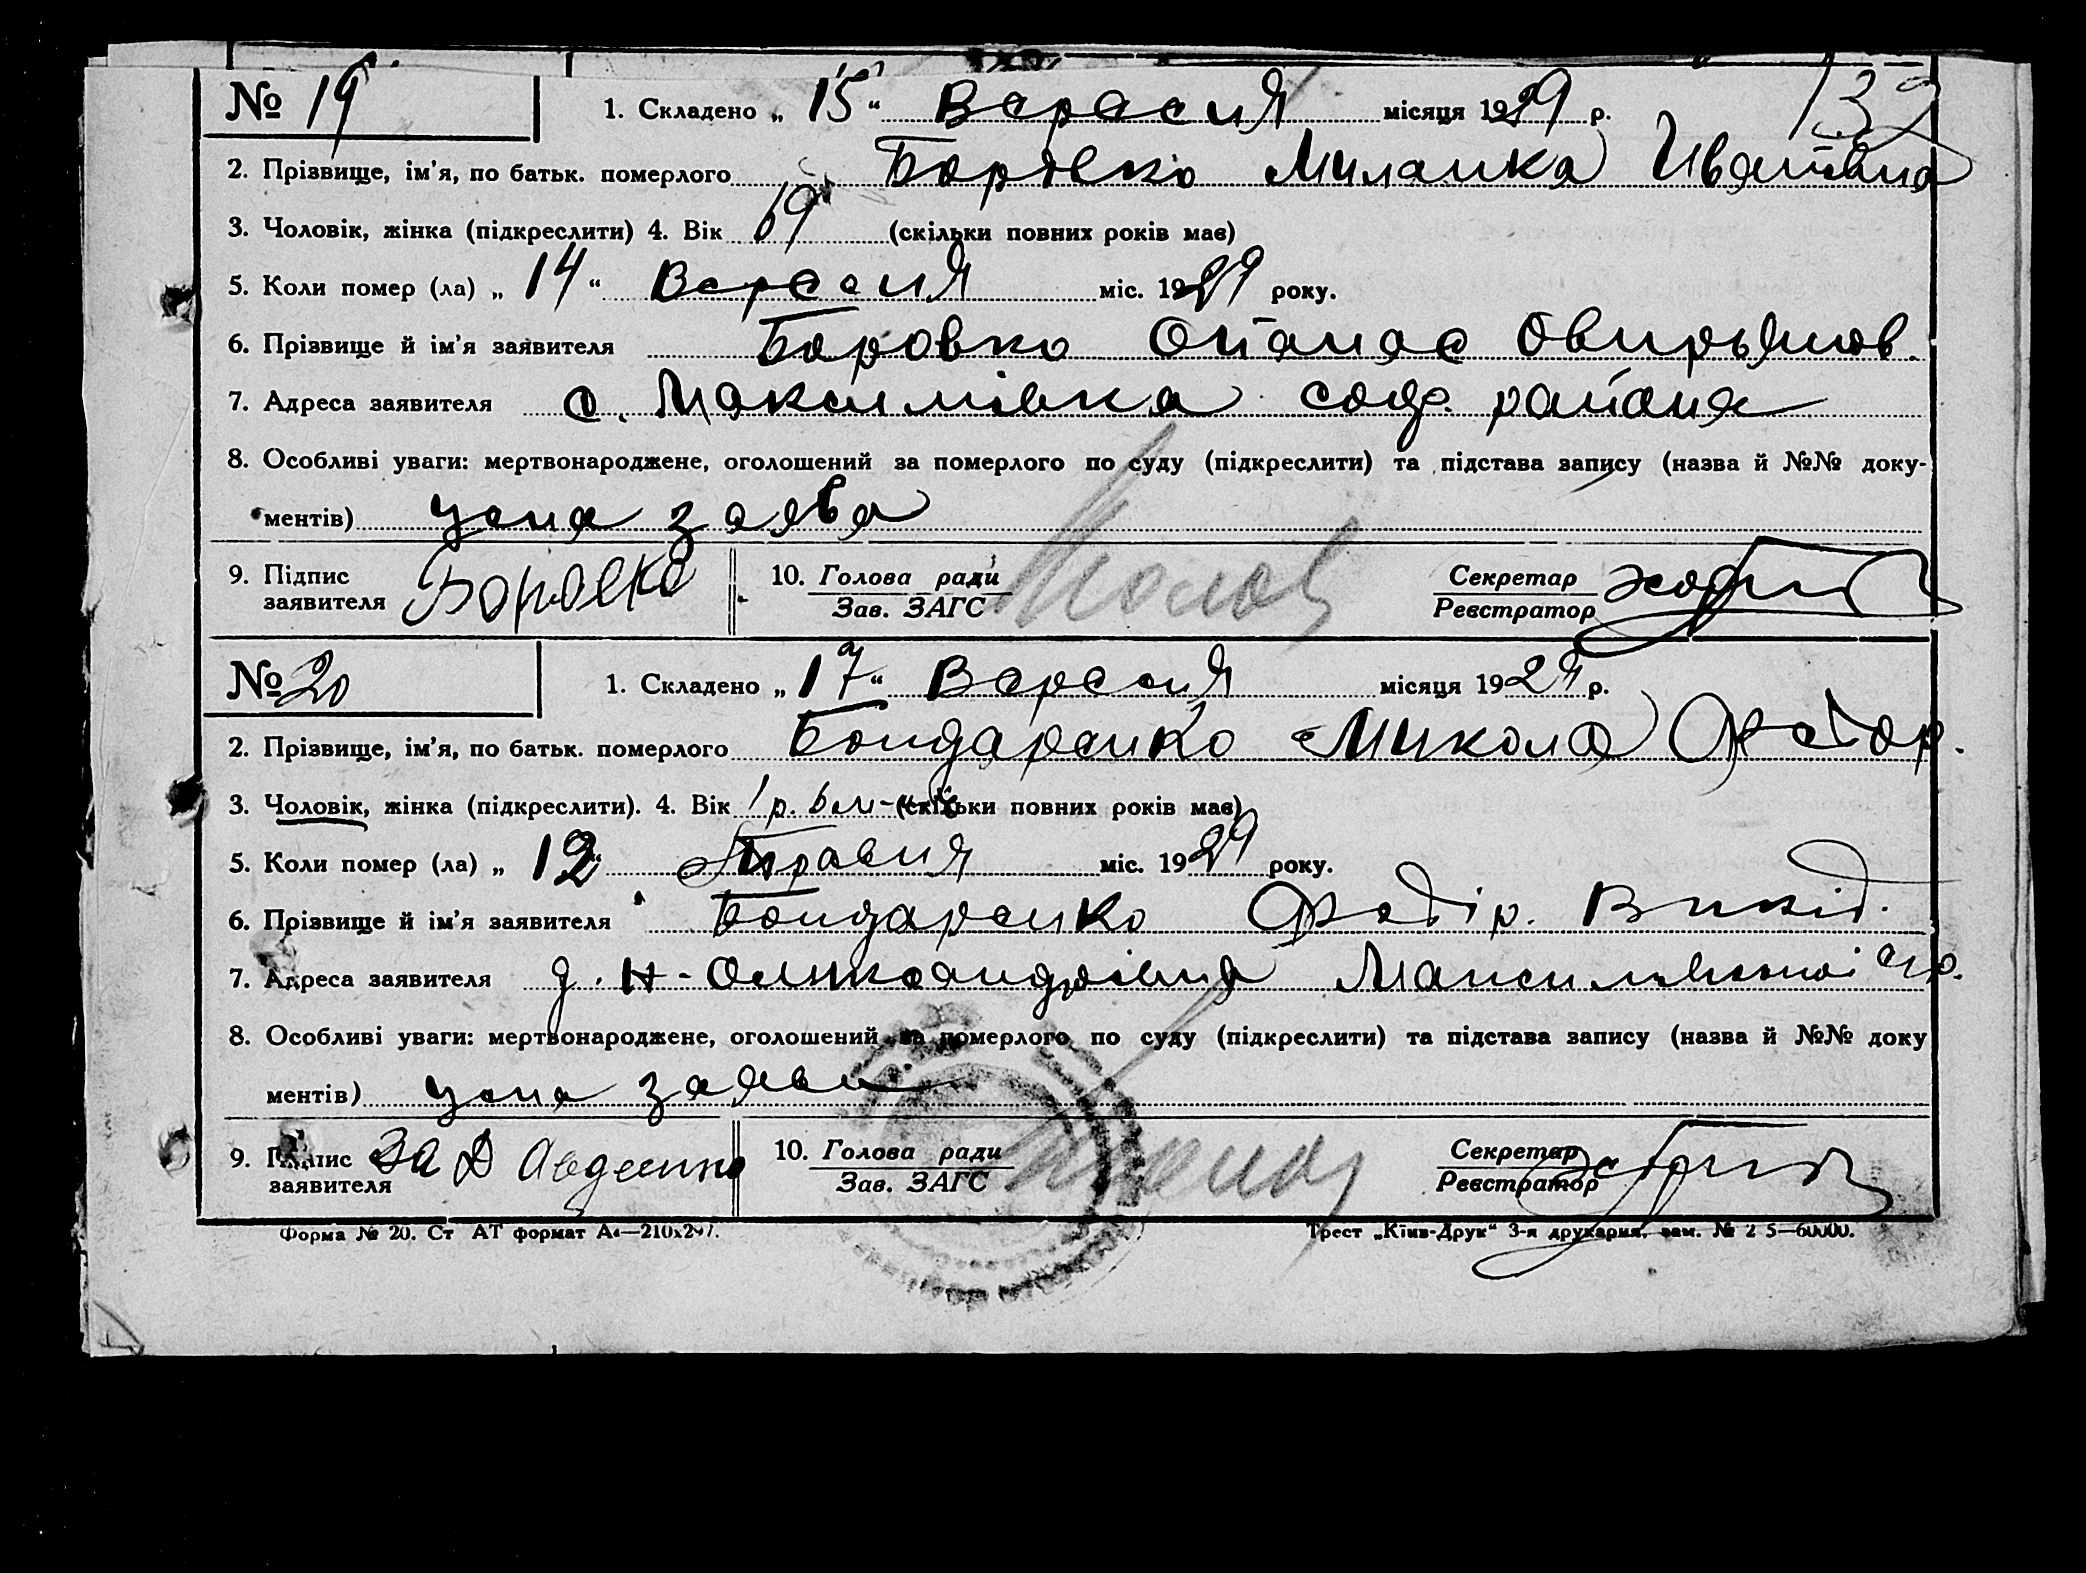 № 19 1. Складено „ 15 “ Вересня місяця 1929 р. 132
2. Прізвище, ім'я, по батьк. померлого Боровко Миланка Ивановна
3. Чоловік, жінка (підкреслити) 4. Вік 69 (скільки повних років має)
5. Коли помер (ла) „ 14 “ Вересня міс. 1929 року.
6. Прізвище й ім'я заявителя Боровко Опанас
7. Адреса заявителя с. Максимівка района
8. Особливі уваги: мертвонароджене, оголошений за померлого по суду (підкреслити) та підстава запису (назва й №№ доку-
ментів) усна заява
9. Підпис заявителя Боровко 10. Голова ради Секретар
Зав. ЗАГС Реєстратор
№ 20 1. Складено „ 17 “ Вересня місяця 1929 р.
2. Прізвище, ім'я, по батьк. померлого Бондаренко Микола Федор.
3. Чоловік, жінка (підкреслити). 4. Вік 1 р. 6 м-ців (скільки повних років має)
5. Коли помер (ла) „ 12 “ Травня міс. 1929 року.
6. Прізвище й ім'я заявителя Бондаренко Федір.
7. Адреса заявителя
8. Особливі уваги: мертвонароджене, оголошений за померлого по суду (підкреслити) та підстава запису (назва й №№ доку
ментів) усна заява
9. Підпис заявителя За Авдеенко 10. Голова ради Секретар
Зав. ЗАГС Реєстратор
Форма № 20. Ст АТ формат А4—210х297. Трест „Київ-Друк“ 3-я друкарня, зам. №